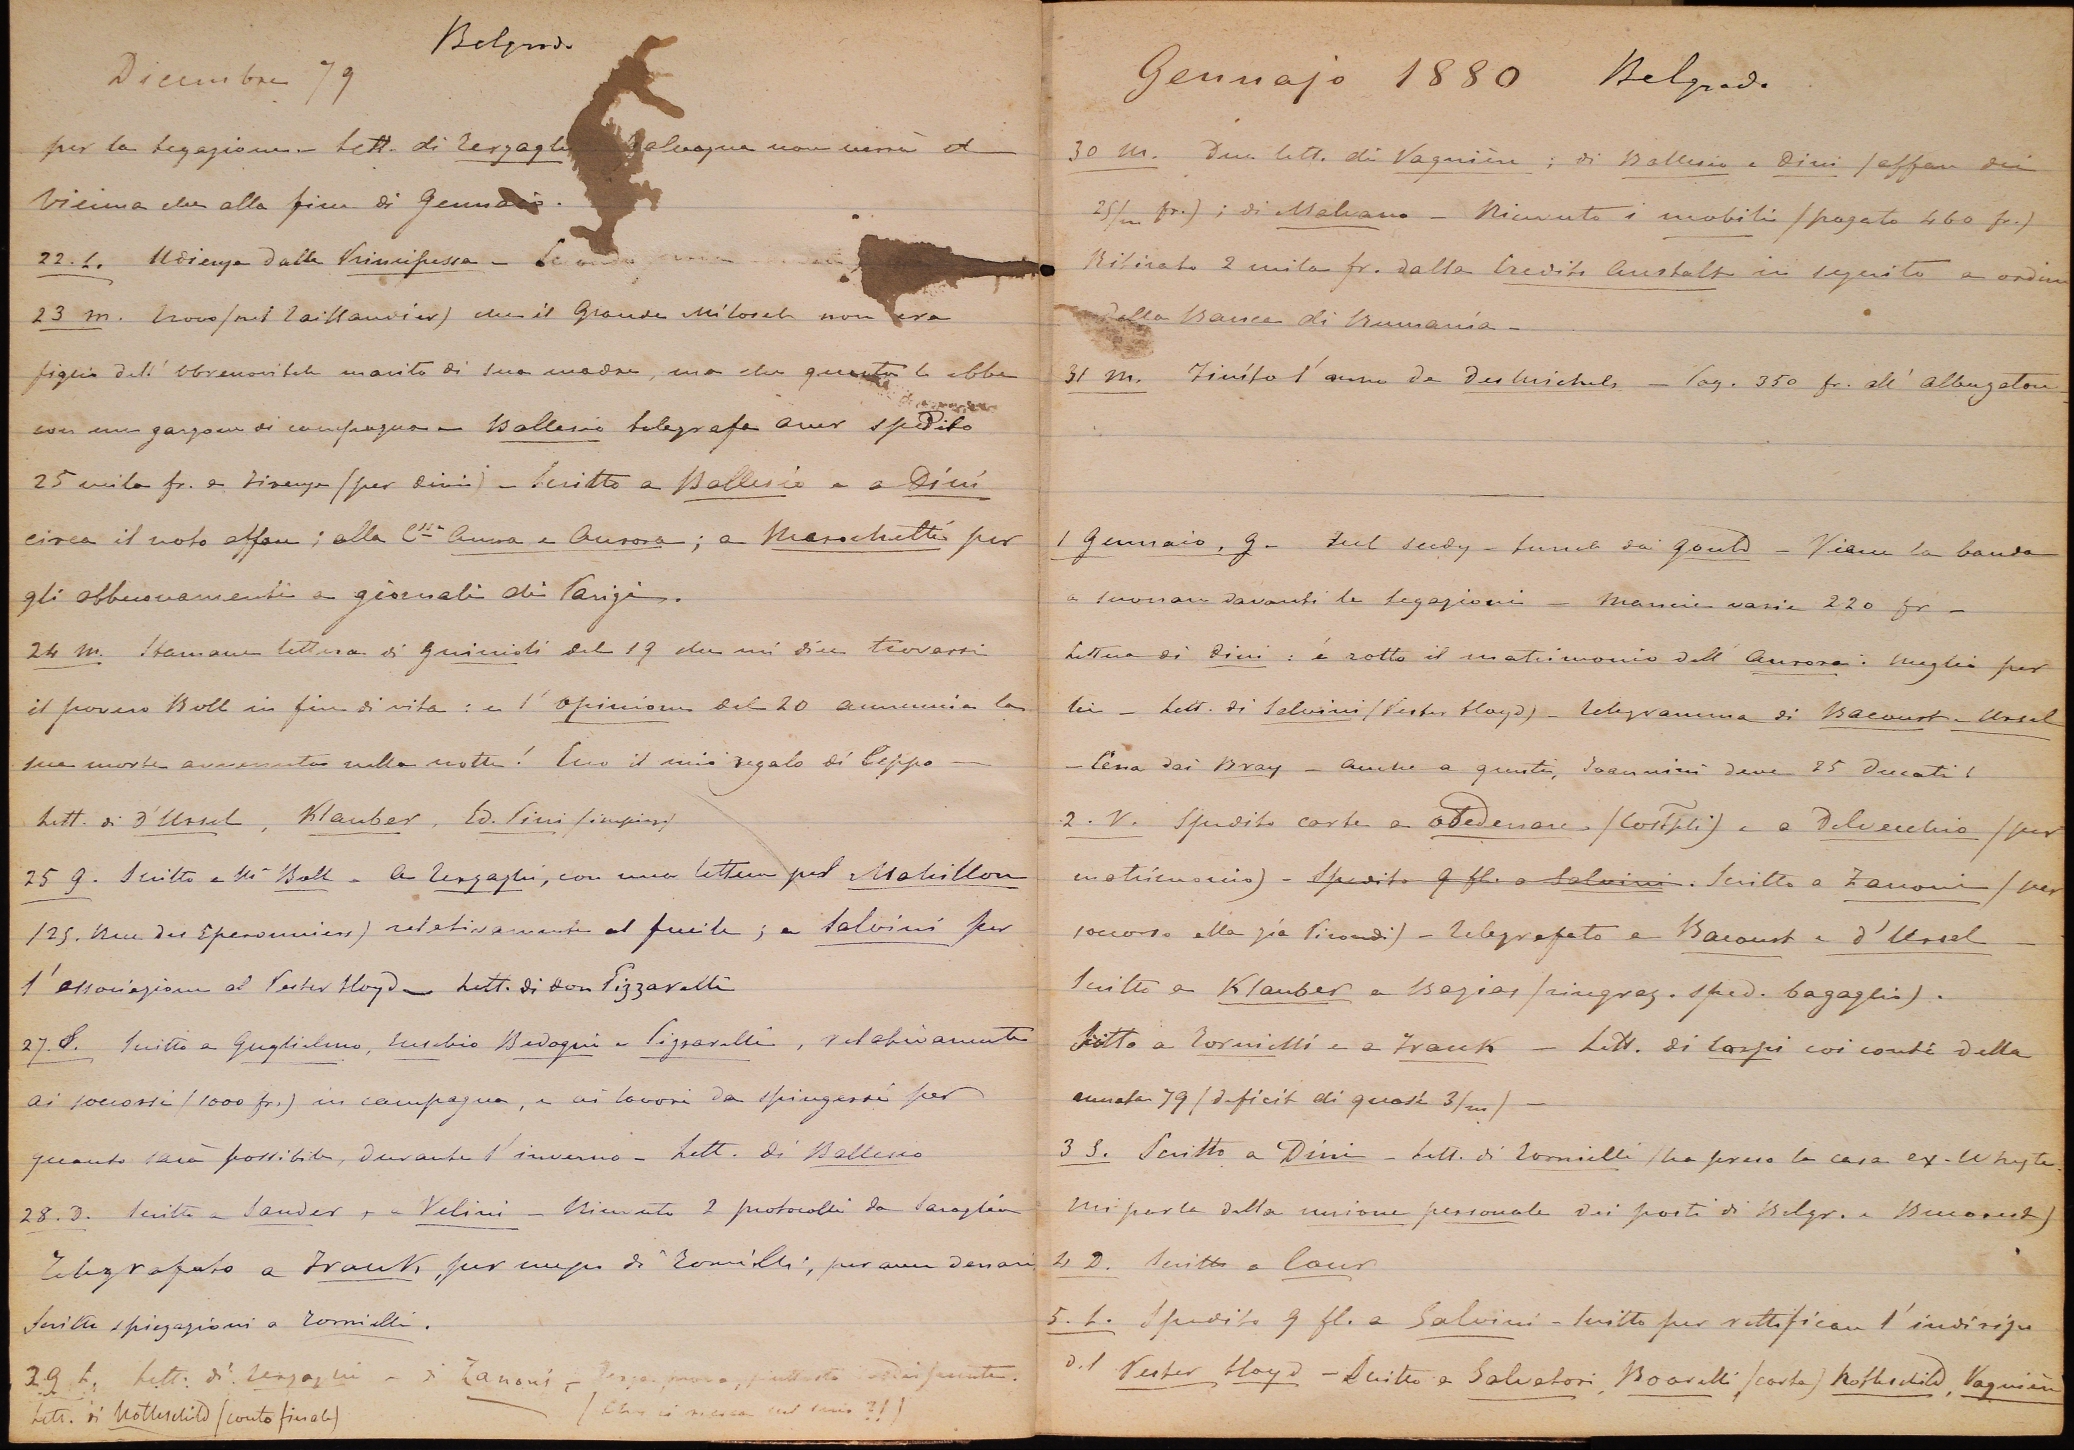 Belgrado
Dicembre 79
per la legazione - Lett. di Verzaghi Salvagna non verrà a
Vienna che alla fine di Gennaio.
22. L. Udienza dalla Principessa -
23 M. Trovo (nel Taillandier) che il Grande Milosch non era
figlio dell' Obrenovitch marito di sua madre, ma che questa lo ebbe
con un garzone di campagna - Ballesio telegrafa aver spedito
25 mila fr. a Firenze (per Dini) - Scritto a Ballesio e a Dini
circa il noto affare ; alla C.ssa Anna e Aurora ; a Marochetti per
gli abbuonamenti a giornali di Parigi.
24 M. Stamane lettera di Guiccioli del 19 che mi dice trovarsi
il povero Boll in fine di vita : e l' Opinione del 20 annunzia la
sua morte avvenuta nella notte ! Ecco il mio regalo di Ceppo -
Lett. di d'Ursel, Klauber, Ed. Pini (impiego)
25 G. Scritto a M.e Boll - A Verzaghi, con una lettera pel Mahillon
(25. Rue des Eperonniers) relativamente al fucile ; a Salvini per
l' associazione al Pester Lloyd - Lett. di Don Pizzarelli
27. S. Scritto a Guglielmo, Eusebio Bedogni e Pizzarelli, relativamente
ai soccorsi (1000 fr.) in campagna, e ai lavori da spingersi per
quanto sarà possibile, durante l' inverno - Lett. di Ballesio
28. D. Scritto a Sander, a Velini - Ricevuto 2 protocolli da
Telegrafato a Frank, per mezzo di Tornielli, per aver denari
Scritte spiegazioni a Tornielli.
29 L. Lett. di Verzaghi - di Zanoni -
Lett. di Rothschild (conto finale)
Gennajo 1880 Belgrado
30 M. Due lett. di Vagnière ; di Ballesio e Dini (affare dei
25/m fr.) ; di Malvano - Ricevuto i mobili (pagato 460 fr.)
Ritirato 2 mila fr. dalla Credit Anstalt in seguito a ordine
della Banca di Rumania -
31 M. Finito l' anno da Des Michels - Pag. 350 fr. all' albergatore
1 Gennaio. G. - Lunch dai Gould - Viene la banda
a suonare davanti le legazioni - Mancie varie 220 fr -
Lettera di Dini : è rotto il matrimonio dell' Aurora : meglio per
lei - Lett. di Salvini (Pester Lloyd) - Telegramma di Bacourt - Ursel
- Cena dai Bray - Anche a questi, Joannini deve 25 Ducati !
2. V. Spedito carte a Obedenare (Costpli) e a Delvecchio (per
matrimonio) - Spedito 9 fl. a Salvini. Scritto a Zanoni (per
soccorso alla già Picondi) - Telegrafato a Bacourt e d' Ursel -
Scritto a Klauber a Bazias (ringraz. sped. bagaglio).
Scritto a Tornielli e a Frank - Lett. di Caspi coi conti della
annata 79 (deficit di quasi 3/m) -
3 S. Scritto a Dini - Lett. di Tornielli (ha preso la casa ex-Whyte.
Mi parla della unione personale dei posti di Belgr. e Bucarest)
4 D. Scritto a Cour
5. L. Spedito 9 fl. a Salvini - Scritto per rettificare l' indirizzo
del Pester Lloyd - Scritto a Salvatori, Boarelli (carte) Rothschild, Vagnière